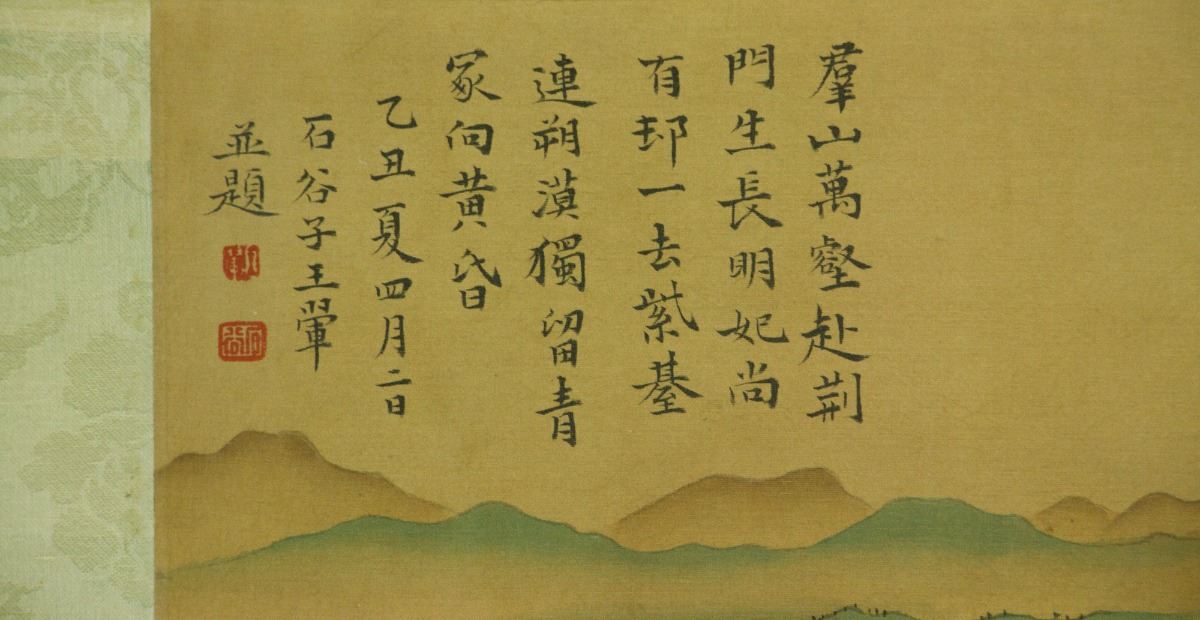 羣山萬壑赴荆
門生長明妃尚
有邨一去紫臺
連朔漠獨留青
冢向黄昏
乙丑夏四月二日
石谷子王翬
並題